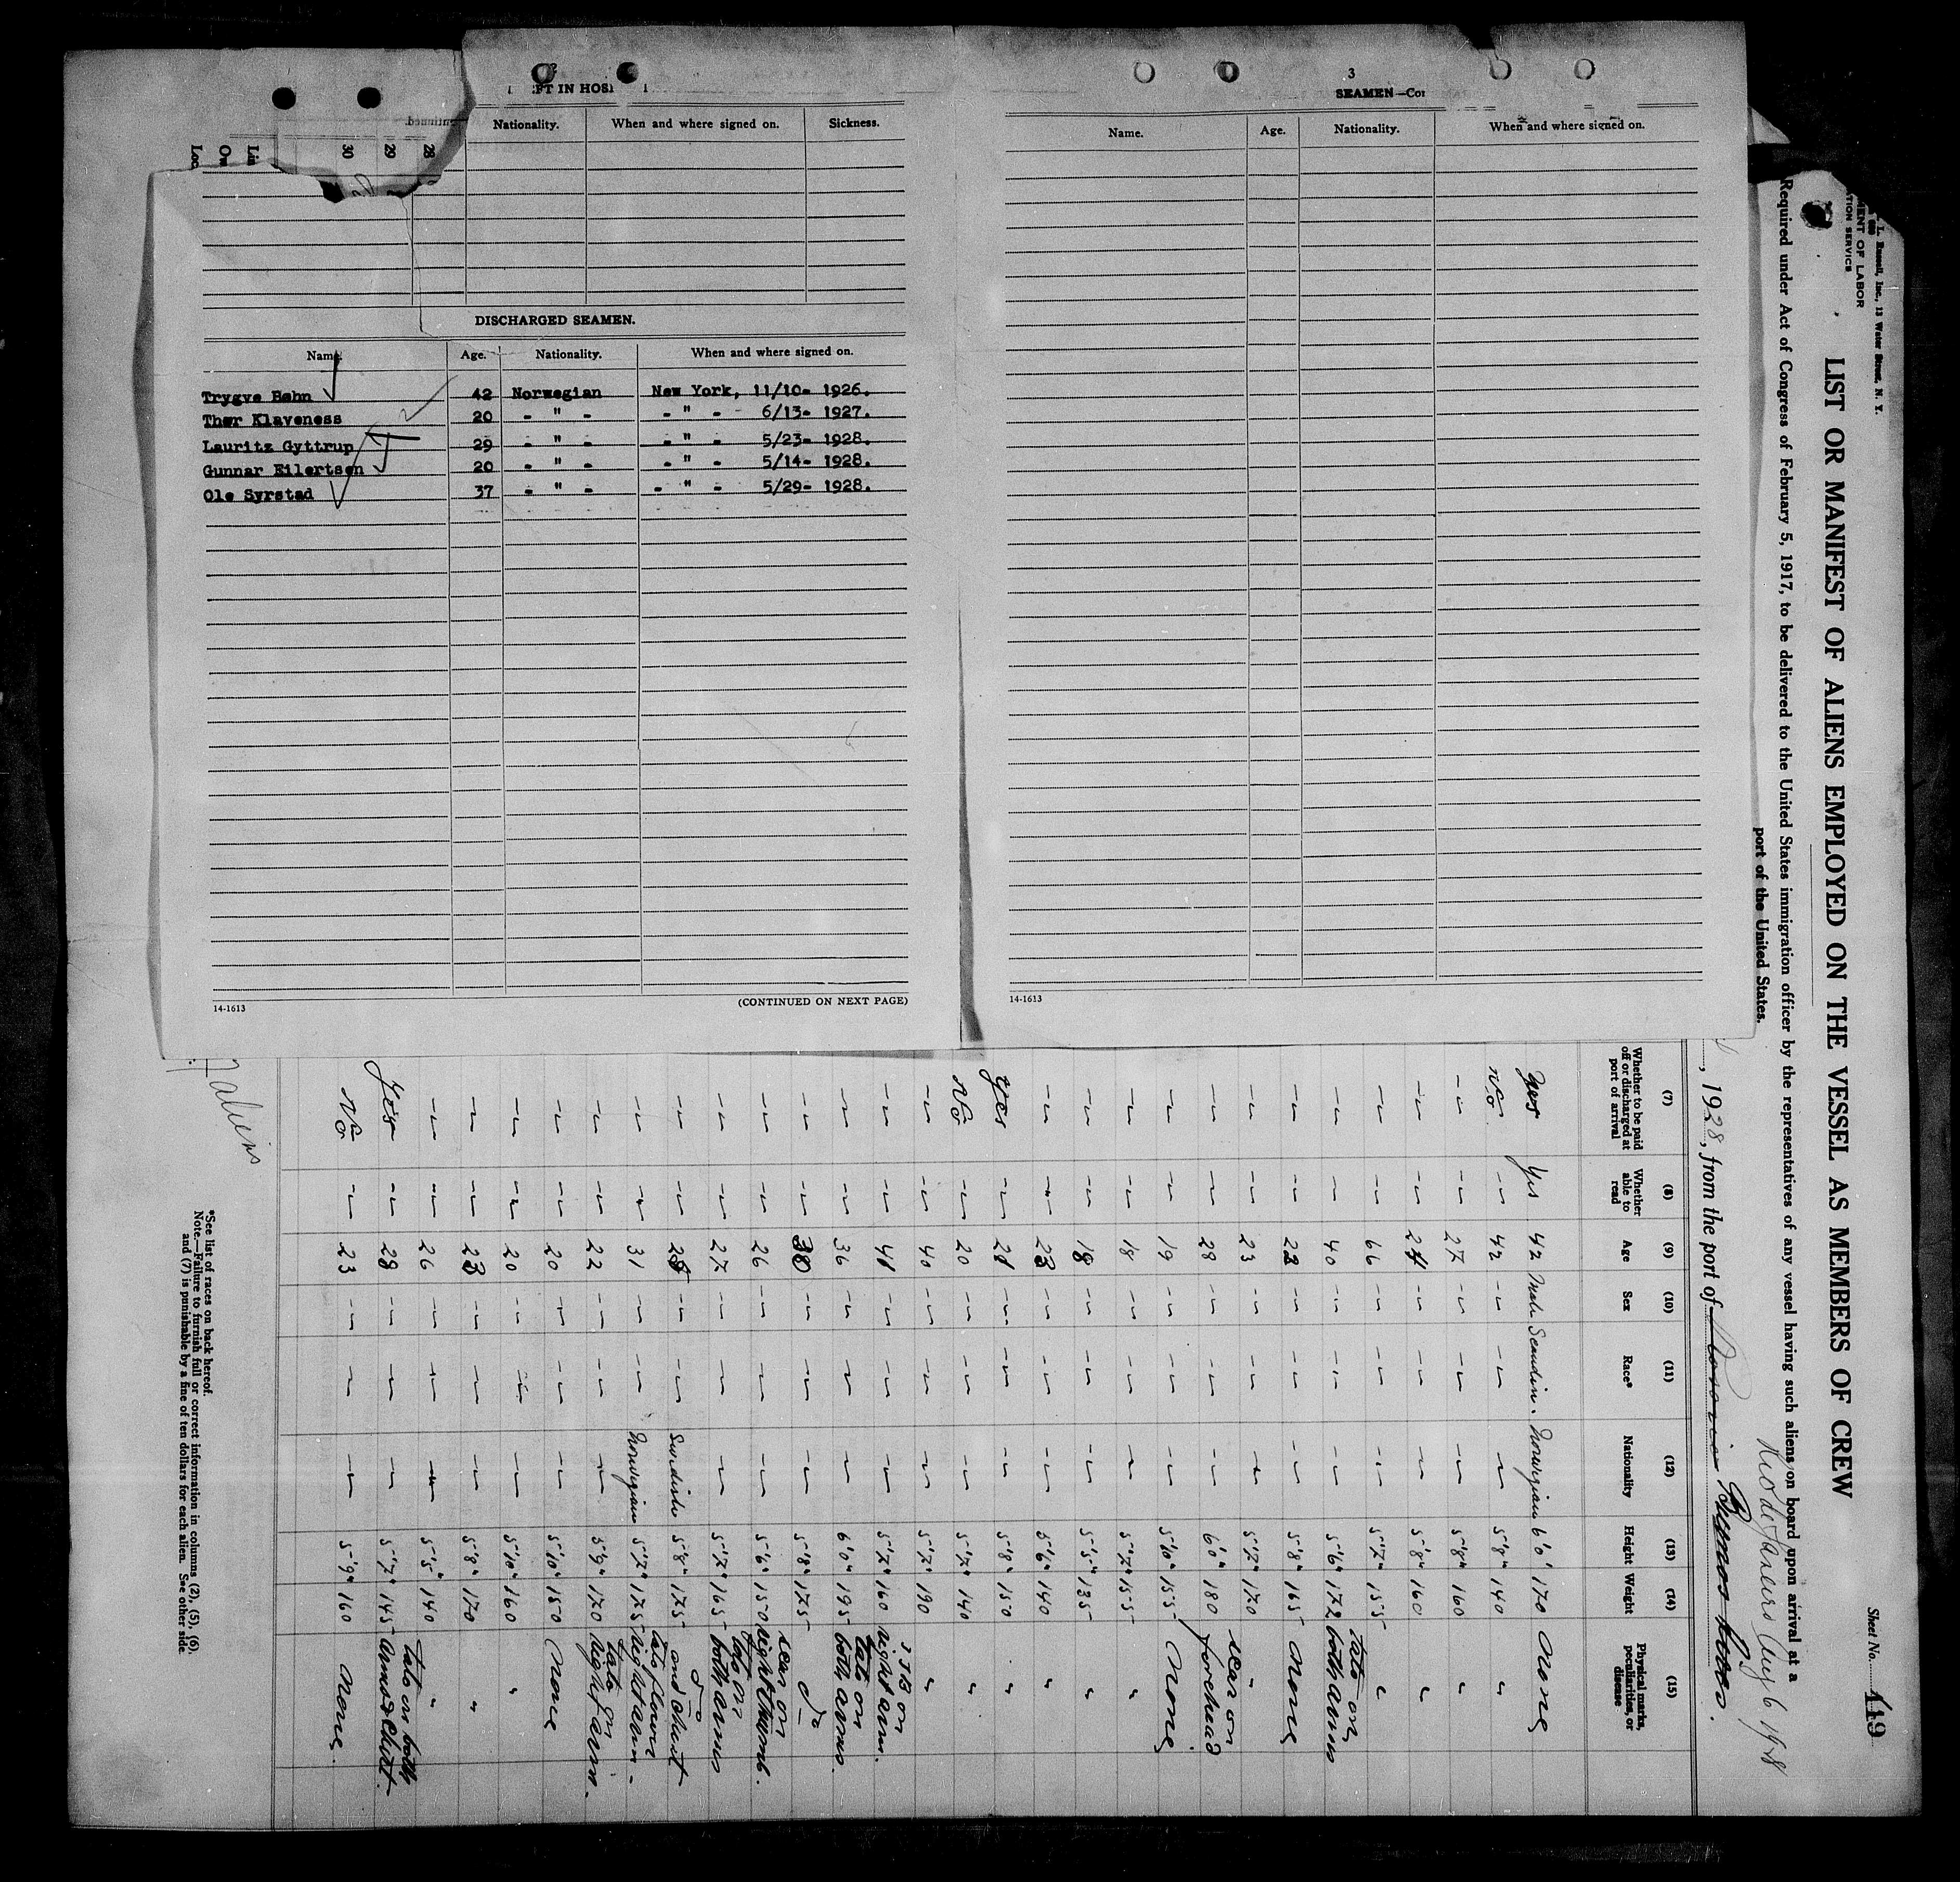 LEFT IN HOS
Nationality. When and where signed on. Sickness.
28
29
30
DISCHARGED SEAMEN.
Name. Age. Nationality. When and where signed on.
Trygve Bøhn 42 Norwegian New York, 11/10- 1926.
Thor Klaveness 20 - " - - " - 6/13- 1927.
Lauritz Gyttrup 29 - " - - " - 5/23- 1928.
Gunnar Eilertsen 20 - " - - " - 5/14- 1928.
Ole Syrstad 37 - " - - " - 5/29- 1928.
14-1613 (CONTINUED ON NEXT PAGE)
3
SEAMEN—Con
Name. Age. Nationality. When and where signed on.
14-1613
L. Russell, Inc., 13 Water Street, N. Y.
MENT OF LABOR
TION SERVICE
Sheet No. 149
LIST OR MANIFEST OF ALIENS EMPLOYED ON THE VESSEL AS MEMBERS OF CREW
Required under Act of Congress of February 5, 1917, to be delivered to the United States immigration officer by the representatives of any vessel having such aliens on board upon arrival at a
port of the United States.
Rio de Janeiro Aug 6 1928
, 1928, from the port of Rosario Buenos Aires.
(7) (8) (9) (10) (11) (12) (13) (14) (15)
Whether to be paid off or discharged at port of arrival Whether able to read Age Sex Race* Nationality Height Weight Physical marks, peculiarities, or disease
Yes Yes 42 Male Scandin. Norwegian 6'0" 170 None
No -"- 42 -"- -"- -"- 5'8" 140 "
-"- -"- 27 -"- -"- -"- 5'8" 160 "
-"- -"- 24 -"- -"- -"- 5'8" 160 "
-"- -"- 66 -"- -"- -"- 5'7" 155 "
-"- -"- 40 -"- -"- -"- 5'6" 172 tato on both arms
-"- -"- 23 -"- -"- -"- 5'8" 165 None
-"- -"- 23 -"- -"- -"- 5'7" 170 scar on
-"- -"- 28 -"- -"- -"- 6'0" 180 forehead
-"- -"- 19 -"- -"- -"- 5'10" 155 None
-"- -"- 18 -"- -"- -"- 5'7" 155 "
-"- -"- 18 -"- -"- -"- 5'5" 135 "
-"- -"- 23 -"- -"- -"- 5'6" 140 "
Yes -"- 21 -"- -"- -"- 5'8" 150 "
No -"- 20 -"- -"- -"- 5'7" 140 "
-"- -"- 40 -"- -"- -"- 5'7" 190 "
-"- -"- 41 -"- -"- -"- 5'7" 160 JJB on right arm.
-"- -"- 36 -"- -"- -"- 6'0" 195 tato on both arms.
-"- -"- 30 -"- -"- -"- 5'8" 175 do
-"- -"- 26 -"- -"- -"- 5'6" 150 scar on right thumb.
-"- -"- 27 -"- -"- -"- 5'7" 165 tato on both arms
-"- -"- 28 -"- -"- Swedish 5'8" 175 do and chest
-"- -"- 31 -"- -"- Norwegian 5'7" 175 tato flower right arm.
-"- -"- 22 -"- -"- -"- 5'9" 170 tato on right arm.
-"- -"- 20 -"- -"- -"- 5'10" 150 None
-"- -"- 20 -"- -"- -"- 5'10" 160 "
-"- -"- 23 -"- -"- -"- 5'8" 170 "
-"- -"- 26 -"- -"- -"- 5'5" 140 "
Yes -"- 28 -"- -"- -"- 5'7" 145 tato on both arms & chest.
No -"- 23 -"- -"- -"- 5'9" 160 None.
aliens
*See list of races on back hereof.
Note.—Failure to furnish full or correct information in columns (2), (5), (6),
and (7) is punishable by a fine of ten dollars for each alien. See other side